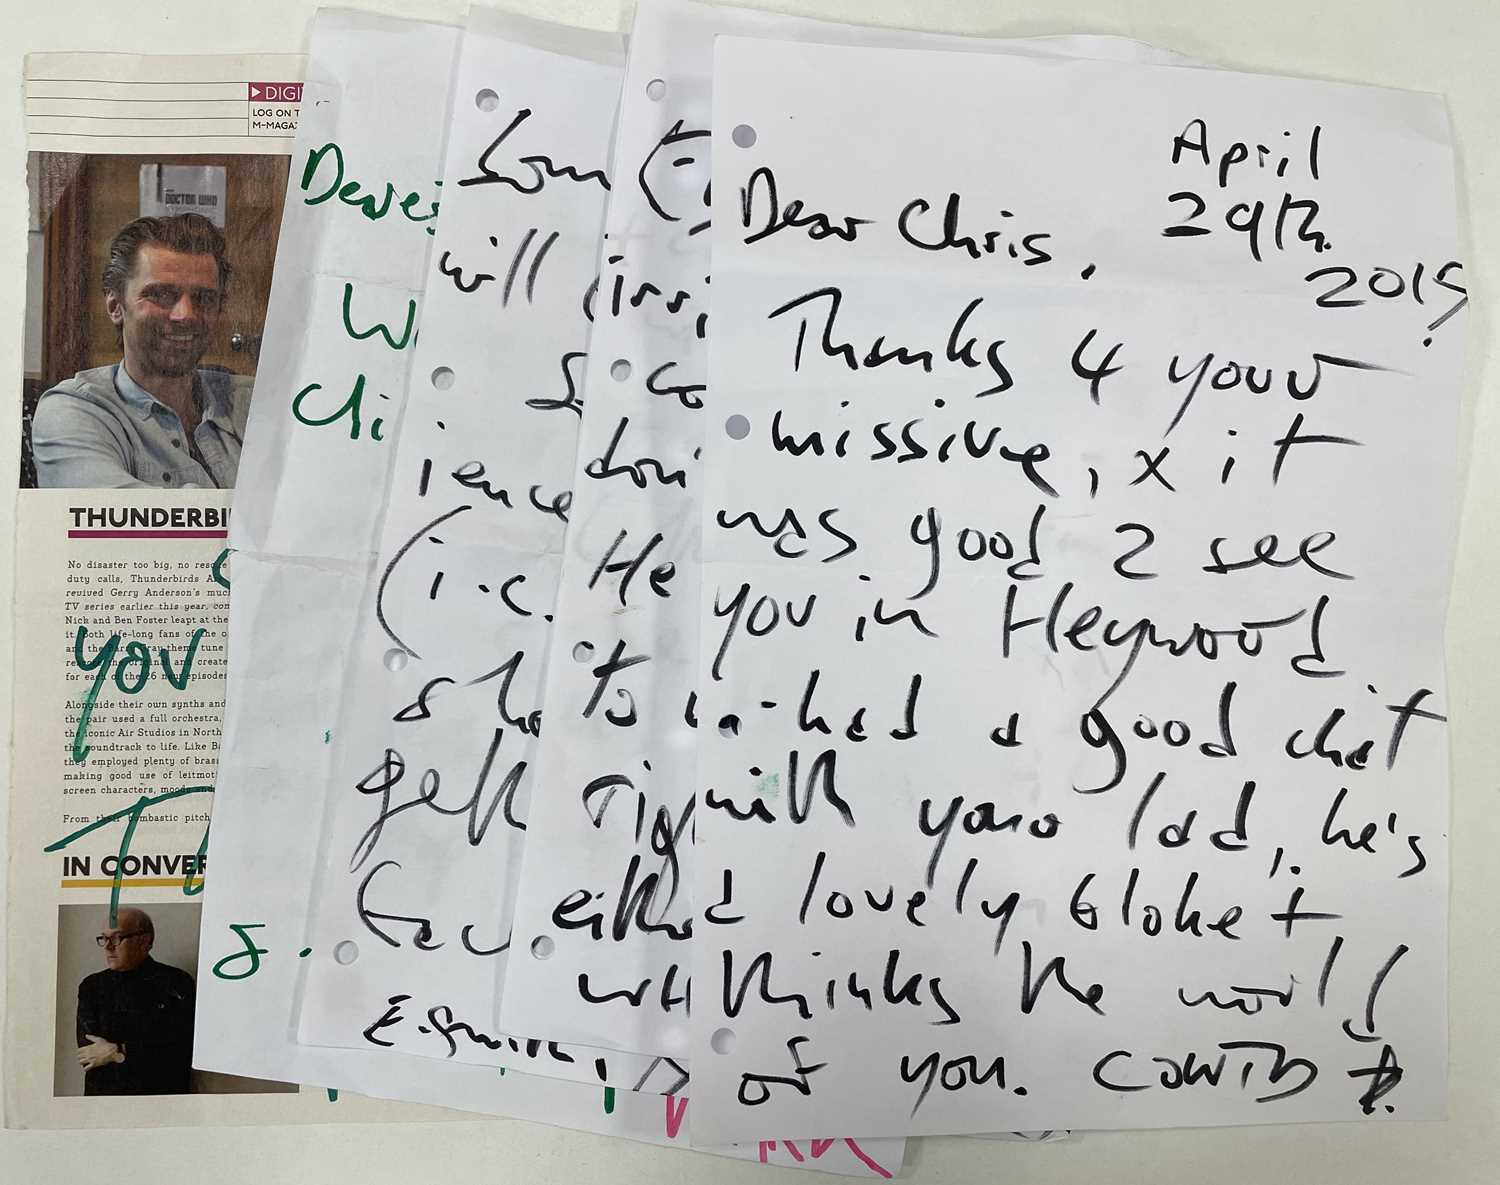 DIGI
LOG ON T
M-MAGAZ
DOCTOR WHO
THUNDERBI
No disaster too big, no rescue
duty calls, Thunderbirds A
revived Gerry Anderson's muc
TV series earlier this year, com
Nick and Ben Foster leapt at the
it. Both life-long fans of the o
and the Barry Gray theme tune
the original and create
for each of the 26 new episodes
Alongside their own synths and
the pair used a full orchestra,
the iconic Air Studios in North
the soundtrack to life. Like Ba
they employed plenty of brass
making good use of leitmot
screen characters, moods and
From their bombastic pitch
you
IN CONVER
Deares
W
Chi
J.
Som
will
ience
(i.e.
sho
get
E. Smith,
irri
S. co
don'
He
to
rig
eith
April
29th
2015
Dear Chris,
Thanks 4 your
missive, x it
was good 2 see
you in Heywood
had a good chat
with your lad, he's
a lovely bloke +
thinks the world
of you.